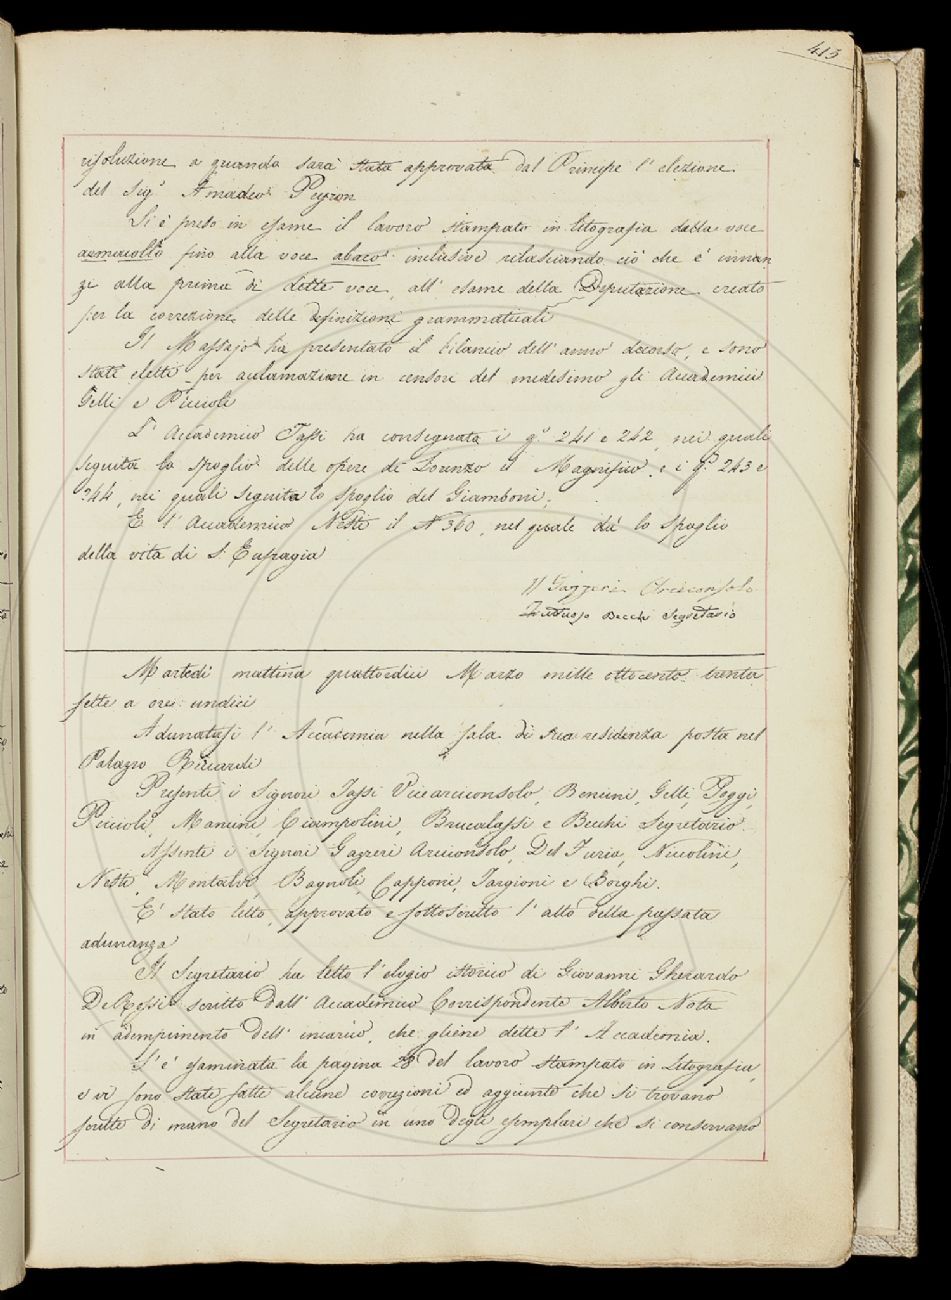 413
risoluzione a quando sarà stata approvata dal Principe l'elezione
del Sig.r Amadeo Peyron
Si è preso in esame il lavoro stampato in litografia dalla voce
fino alla voce abaco inclusive rilasciando ciò che è innan
zi alla prima di dette voce, all'esame della Deputazione creata
per la correzione delle definizioni grammaticali
Il Massajo ha presentato il bilancio dell'anno decorso, e sono
stati eletti per acclamazione in censori del medesimo gli Accademici
Gelli e Piccioli
L'Accademico Tassi ha consegnata i q.i 241 e 242, nei quali
seguita lo spoglio delle opere di Lorenzo il Magnifico, e i q.i 243 e
244, nei quali seguita lo spoglio del Giamboni.
E l'Accademico Nesti il N° 360, nel quale dà lo spoglio
della vita di S. Eufragia
Gazzeri Arciconsolo
Fruttuoso Becchi Segretario
Martedì mattina quattordici Marzo mille ottocento trenta
sette a ore undici
Adunatasi l'Accademia nella sala di sua residenza posta nel
Palazzo Riccardi
Presenti i Signori Tassi Vicearciconsolo, Bencini, Gelli, Poggi,
Piccioli, Mancini, Ciampolini, Brucalassi e Becchi Segretario.
Assenti i Signori Gazzeri Arciconsolo, Del Furia, Niccolini,
Nesti, Montalvi, Bagnoli Capponi, Targioni e Borghi.
E' stato letto, approvato e sottoscritto l'atto della passata
adunanza
Il Segretario ha letto l'elogio istorico di Giovanni Gherardo
De Rossi scritto dall'Accademico Corrispondente Alberto Nota
in adempimento dell'incarico, che gliene dette l'Accademia.
S'è esaminata la pagina 28 del lavoro stampato in Litografia,
e vi sono state fatte alcune correzioni ed aggiunte che si trovano
scritte di mano del Segretario in uno degli esemplari che si conservano